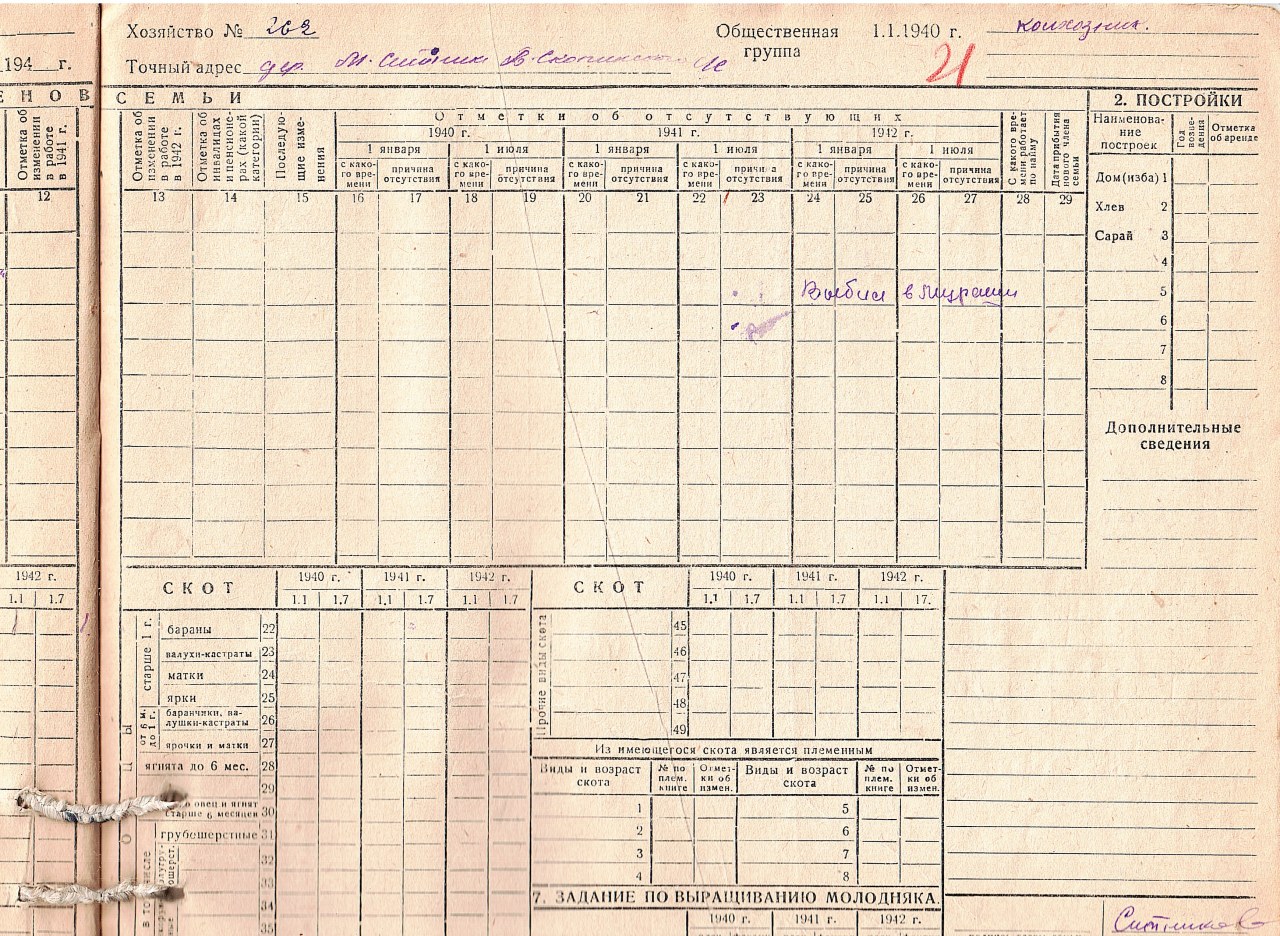 Хозяйство № 262
Общественная группа 1.1.1940 г. колхозник.
194 г.
Точный адрес дер.
21
ЕНОВ СЕМЬИ
2. ПОСТРОЙКИ
Отметка об изменении в работе в 1941 г.
Отметка об изменении в работе в 1942 г.
Отметка об инвалидах и пенсионерах (какой категории)
Последующие изменения
Отметки об отсутствующих
1940 г. 1941 г. 1942 г.
1 января 1 июля 1 января 1 июля 1 января 1 июля
с какого времени причина отсутствия с какого времени причина отсутствия с какого времени причина отсутствия с какого времени причина отсутствия с какого времени причина отсутствия с какого времени причина отсутствия
С какого времени работает по найму
Дата прибытия нового члена семьи
12 13 14 15 16 17 18 19 20 21 22 23 24 25 26 27 28 29
Наименование построек
Год возведения
Отметка об аренде
Дом(изба) 1
Хлев 2
Сарай 3
4
5
6
7
8
Выбыл в Мураши
Дополнительные сведения
1942 г.
1.1 1.7
СКОТ 1940 г. 1941 г. 1942 г.
1.1 1.7 1.1 1.7 1.1 1.7
старше 1 г.
бараны 22
валухи-кастраты 23
матки 24
ярки 25
от 6 м. до 1 г.
баранчики, валушки-кастраты 26
ярочки и матки 27
ягнята до 6 мес. 28
29
о овец и ягнят старше 6 месяцев 30
грубошерстные 31
32
33
34
35
в том числе
СКОТ 1940 г. 1941 г. 1942 г.
1.1 1.7 1.1 1.7 1.1 17.
Прочие виды скота
45
46
47
48
49
Из имеющегося скота является племенным
Виды и возраст скота № по плем. книге Отметки об измен. Виды и возраст скота № по плем. книге Отметки об измен.
1 5
2 6
3 7
4 8
7. ЗАДАНИЕ ПО ВЫРАЩИВАНИЮ МОЛОДНЯКА.
1940 г. 1941 г. 1942 г.